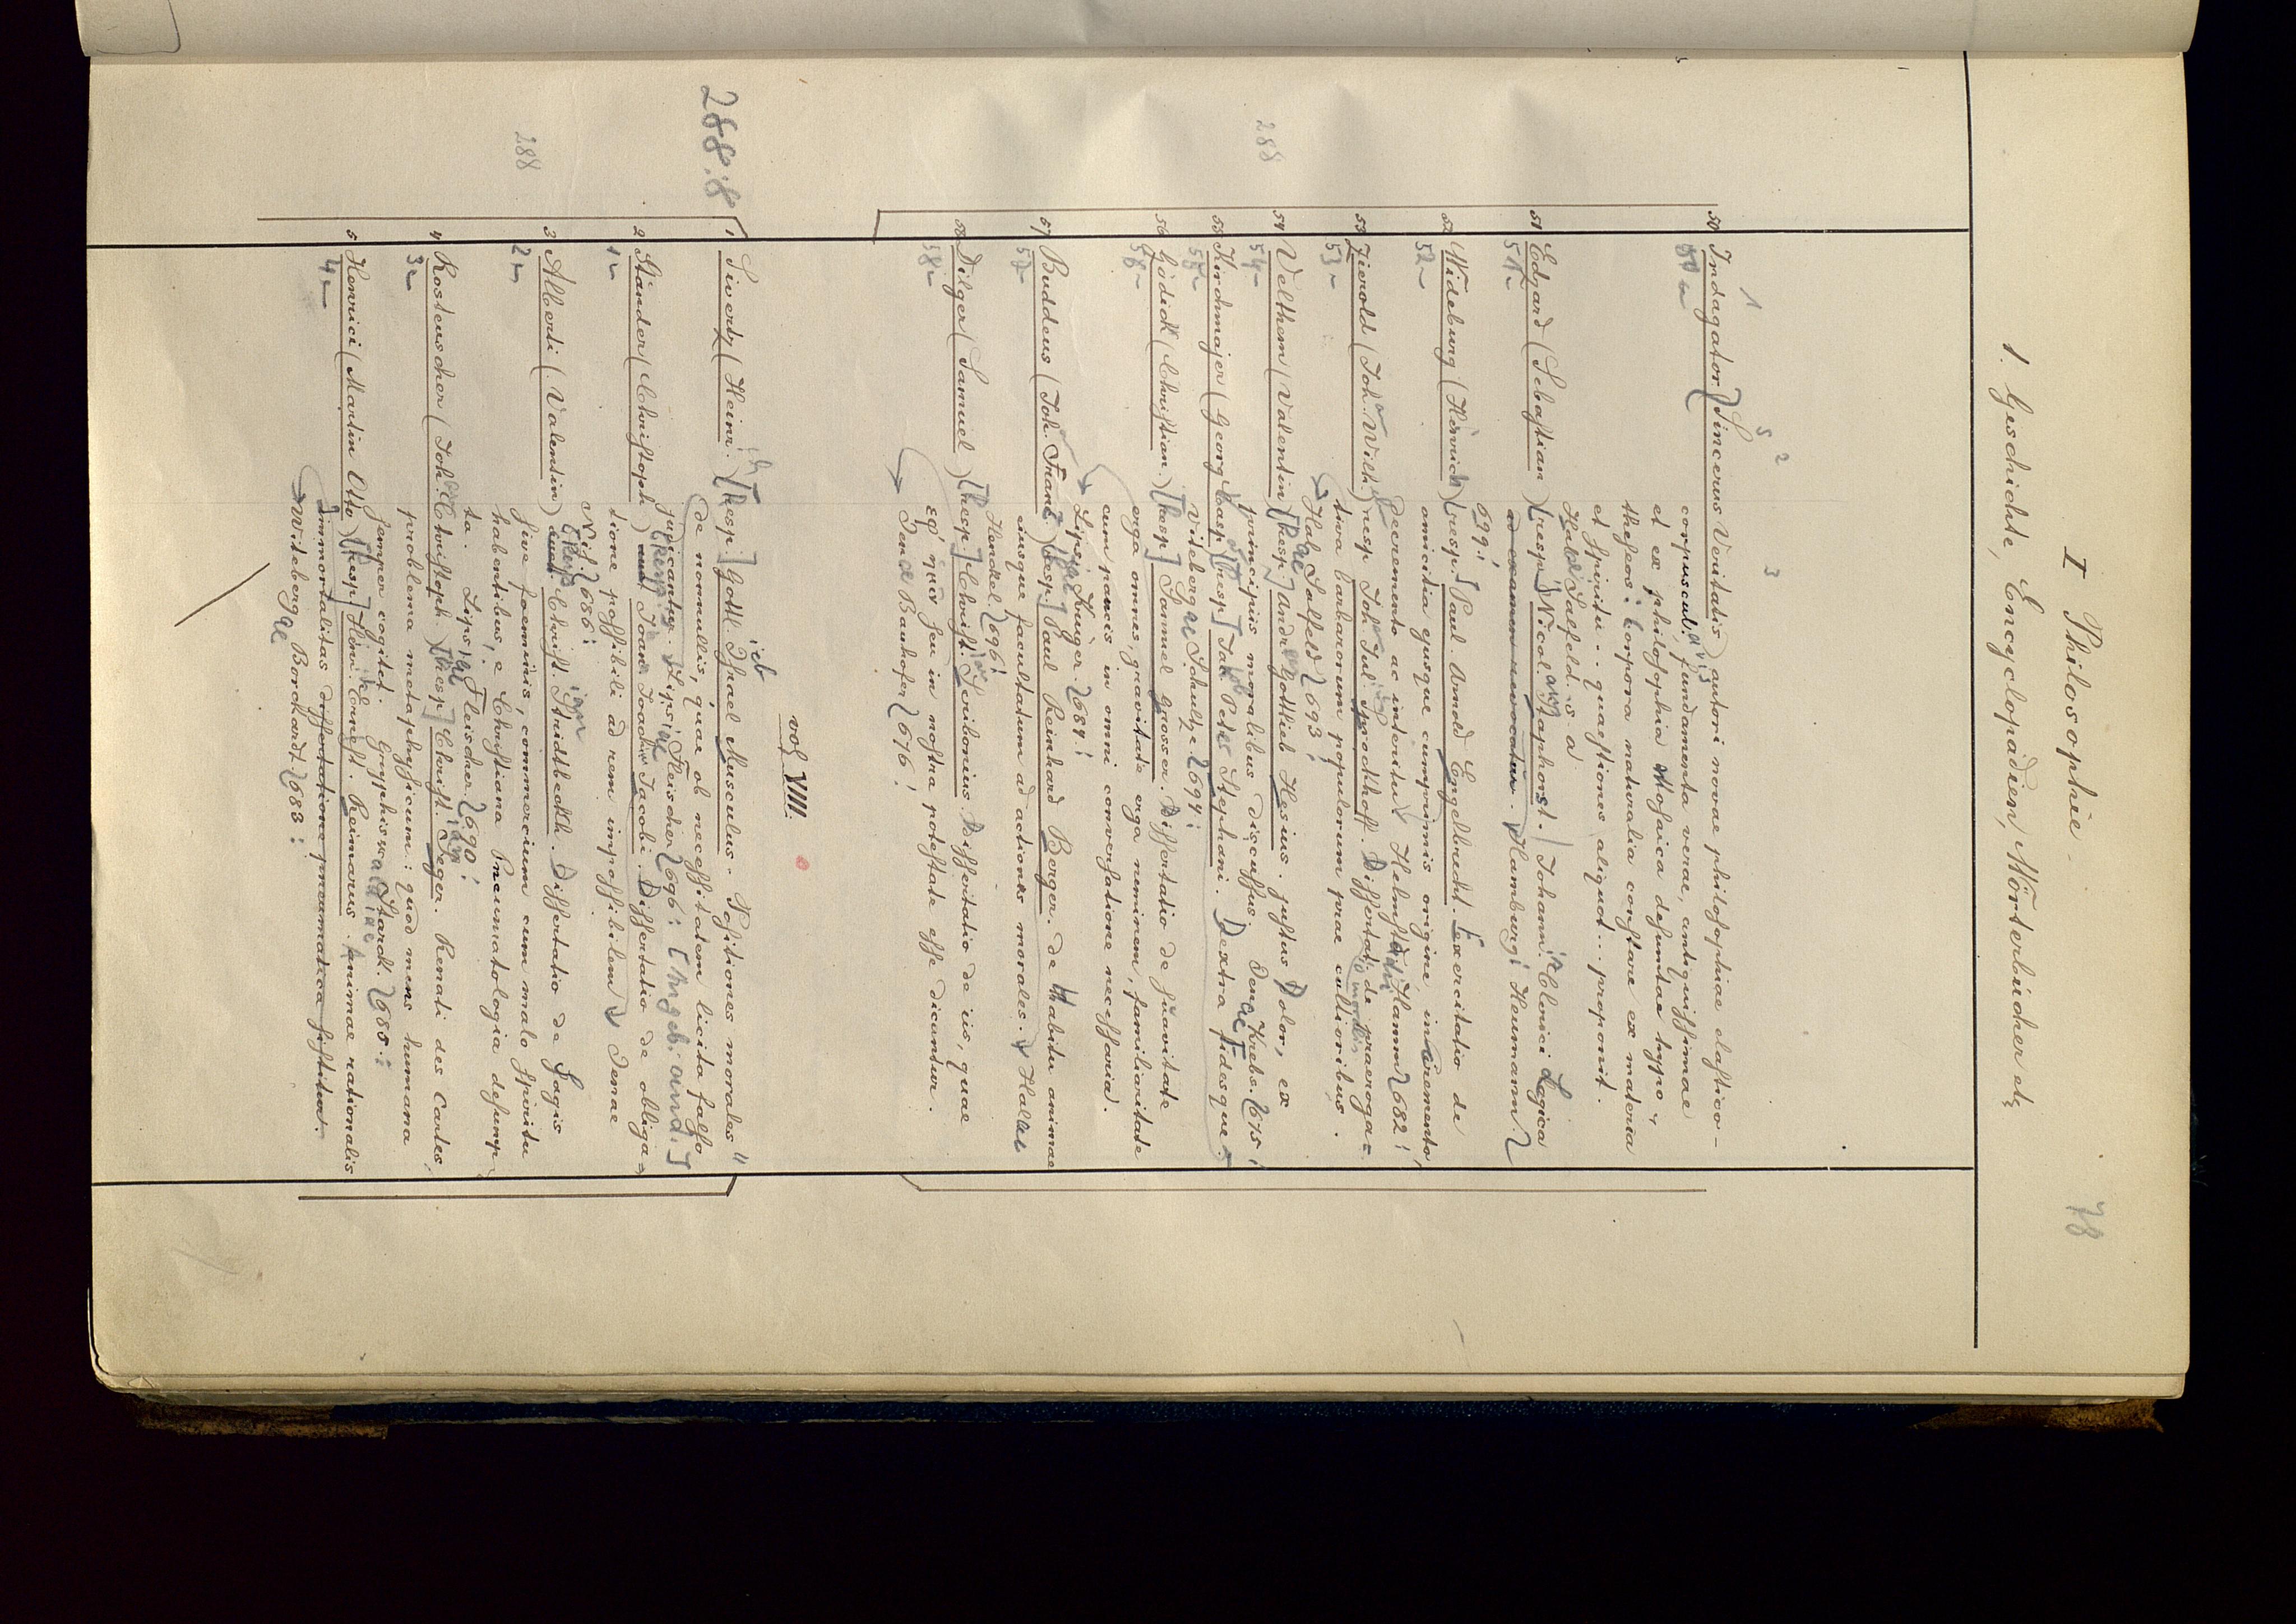 I Philosophie
78
1. Geschichte, Encyclopädien, Wörterbücher etz
50 Indagator Sincerus Veritatis) autori novae philosophiae elastico-
50 corpuscularis fundamenta verae, antiquissimae
et ex philosophia Mosaica desumtae hypo-
theseos: corpora naturalia constare ex materia
et spiritu .. quaestiones aliquot .. proponit.
Salfeld
51 Edzard (Sebastian) [resp.] Nicol. Staphorst. Johannis Clerici Logica
51 ad examen revocatur. Hamburgi Heumann
699!
52 Wideburg (Heinrich) [resp.] Paul. Arnold Engelbrecht. Exercitatio de
52 amicitia ejusque cumprimis origine incremento,
decremento ac interitu Helmstadii Hamm 682!
53 Zierold (Joh. Wilh.) resp Joh. Jul. Sprockhoff. Dissertatio de praeroga=
53 tiva barbarorum populorum prae cultioribus.
Hal Salfeld 693!
288
54 Velthem (Valentin) [Resp.] Andr. Gottlieb Hesius. justus Dolor, ex
54 principiis moralibus discussus Jenae Krebs. 675!
55 Kirchmajer (Georg Casp.) [resp] Jak Peter Stephani. Dextra fidesque.
55 Vitebergae Schultze 694!
56 Gödick (Christian) [Resp] Samuel Grosser. Dissertatio de suavitate
56 erga omnes, gravitate erga neminem, familiaritate
cum paucis in omni conversatione necessaria.
Lipsiae Krüger. 684!
57 Buddeus (Joh. Franz) [resp.] Paul Reinhard Berger. de Habitu animae
57 eiusque facultatum ad actiones morales. Hallae
Henckel. 696!
58 Dilger (Samuel) [Resp] Christ. Scribonius. Dissertatio de iis, quae
58 ἐφ' ἡμῖν seu in nostra potestate esse dicuntur.
Jenae Bauhofer 676!
vol VIII.
288:8
1 Sivertz (Heinr.) [Resp.] Gottlieb Israel Musculus. Positiones morales
de nonnullis, quae ob necessitatem licita falso
judicantur. Lipsiae Fleischer 696! [Angeb. and.]
2 Ständer (Christoph) Jacobi. Dissertatio de obliga=
1 tione possibili ad rem impossibilem Jenae
Nis. 686!
288
3 Alberti (Valentin) Christian Stridtbeckh. Dissertatio de Sagis
2 sive foeminis, commercium cum malo spiritu
habentibus, e Christiana Pneumatologia desump
ta. Lipsiae Fleischer. 690!
4 Rosteuscher (Joh. Christoph) [Resp] Christ. Jeger. Renati des Cartes,
3 problema metaphysicum: quod mens humana
semper cogitet. Gryphiswaldiae Starck. 685!
5 Henrici (Martin Otto) [Resp] Heinr. Ernest. Reimarus. Animae rationalis
4 immortalitas dissertatione pneumatica sistitur.
Witebergae Borckardt. 688!